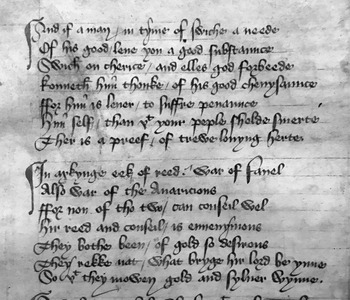 And if a man / in tyme of swiche a neede
Of his good / leue yow a good substaunce
Swich on cherice / and elles god forbeede
Konneth him thonke / of his good chevysance
ffor him is leuer / to suffre penaunce
Him self / than þt your peple sholde smerte
Ther is a preef / of trewe louyng herte
In axkynge eek of reed / war of fauel
Also war of the Auaricious
ffor non of tho two / can conseil wel
hir reed and conseil / is enuenymous
They bothe been / of gold so desirous
They rekke nat / what brige hir lord be ynne
So þt they mowen gold and syluer wynne